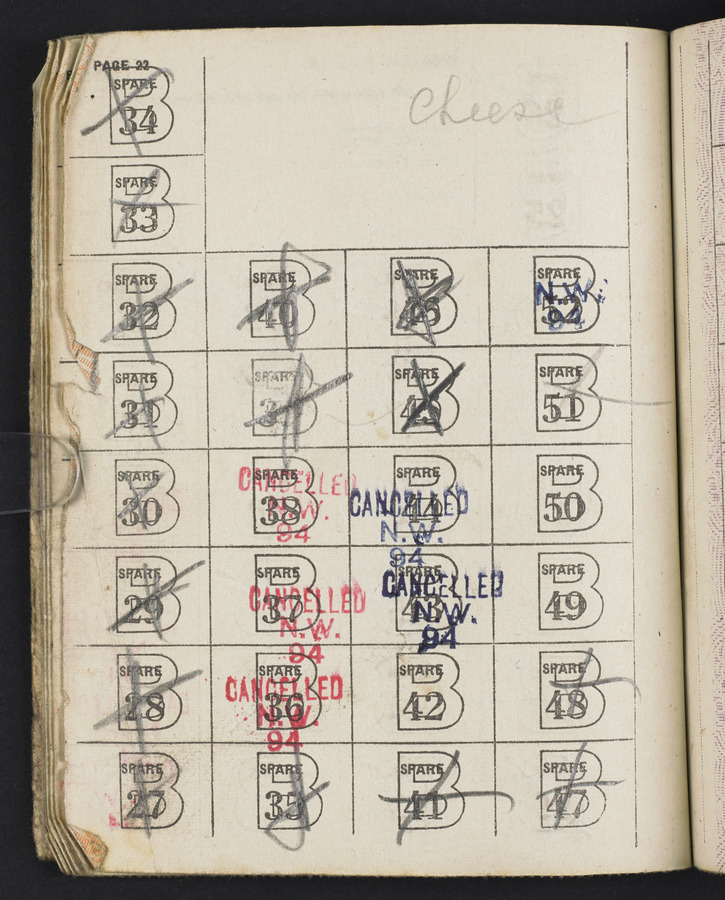 PAGE 22
SPARE
B
34
Cheese
SPARE
B
33
SPARE
B
32
SPARE
B
40
SPARE
B
SPARE
B
52
N.W.
94
SPARE
B
31
SPARE
B
SPARE
B
45
SPARE
B
51
SPARE
B
30
SPARE
B
38
CANCELLED
N.W.
94
B
44
CANCELLED
N.W.
94
SPARE
B
50
SPARE
B
29
SPARE
B
37
CANCELLED
N.W.
94
SPARE
B
43
CANCELLED
N.W.
94
SPARE
B
49
SPARE
B
28
SPARE
B
36
CANCELLED
N.W.
94
SPARE
B
42
SPARE
B
48
SPARE
B
27
SPARE
B
35
SPARE
B
41
SPARE
B
47